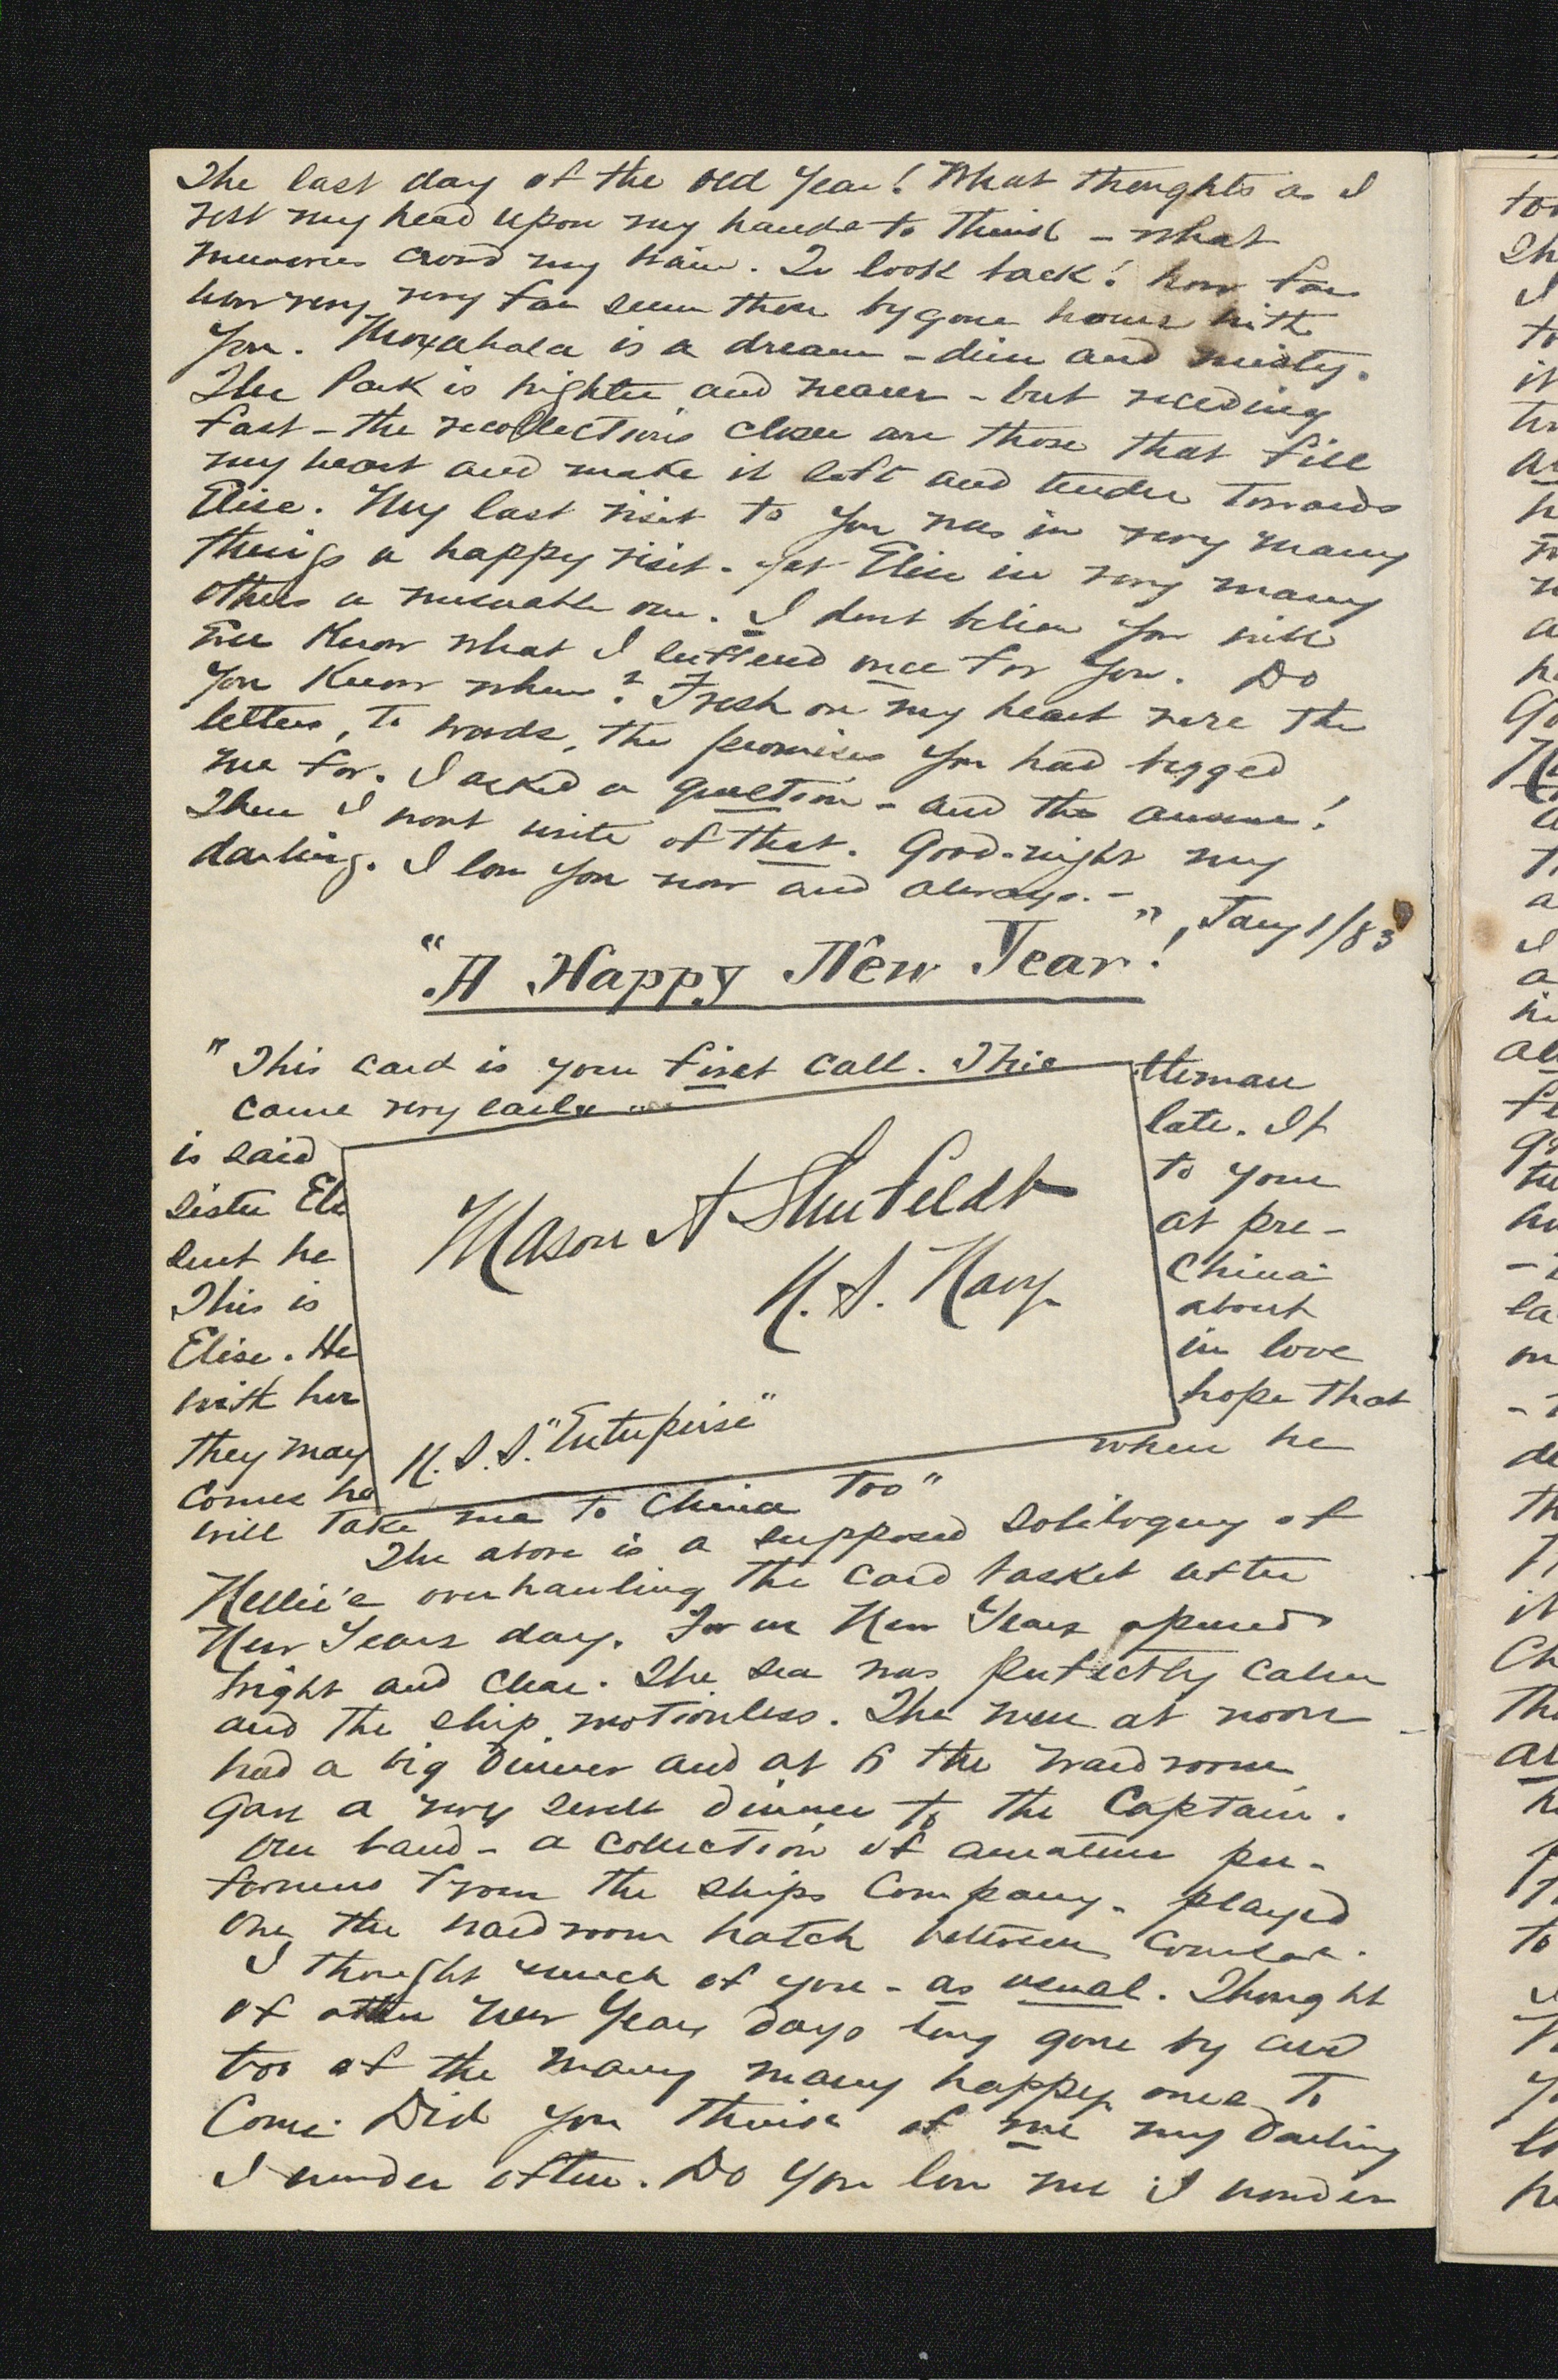 The last day of the old Year! What thoughts as I
rest my head upon my hands to think - what
memories crowd my brain. To look back! how far
how very very far seem those bygone hours with
You. Moxahala is a dream - dim and misty.
The Park is brighter and nearer - but receding
fast - the recollections closer are those that fill
my heart and make it soft and tender towards
Elise. My last visit to you was in very many
things a happy visit - yet Elise in very many
others a miserable one. I dont believe you will
Ever Know what I suffered once for you. Do
You Know when? Fresh on my heart were the
letters, to words, the promises you had begged
me for. I asked a question - and the answer!
Then I wont write of that. Good-night my
darling. I love you now and always. -
"A Happy New Year!", Jany 1/83
"This card is your first call. This
tleman
came very early
late. It
is said
to your
sister Eli
at pre-
sent he
China
This is
about
Elise. He
in love
with her
hope that
they may
when he
comes he
will take me to China too"
Mason A Shufeldt
U. S. Navy
U. S. S. "Enterprise"
The above is a supposed soliloquy of
Nellie's overhauling the card basket after
New Years day. For us New Years opened
bright and clear. The sea was perfectly calm
and the ship motionless. The men at noon
had a big dinner and at 6 the wardroom
gave a very swell dinner to the Captain.
Our band - a collection of amateur per-
formers from the ships Company - played
over the wardroom hatch between courses.
I thought much of you - as usual. Thought
of other New Years days long gone by and
too of the many many happy ones to
Come. Did you think of me my darling
I wonder often. Do you love me I wonder